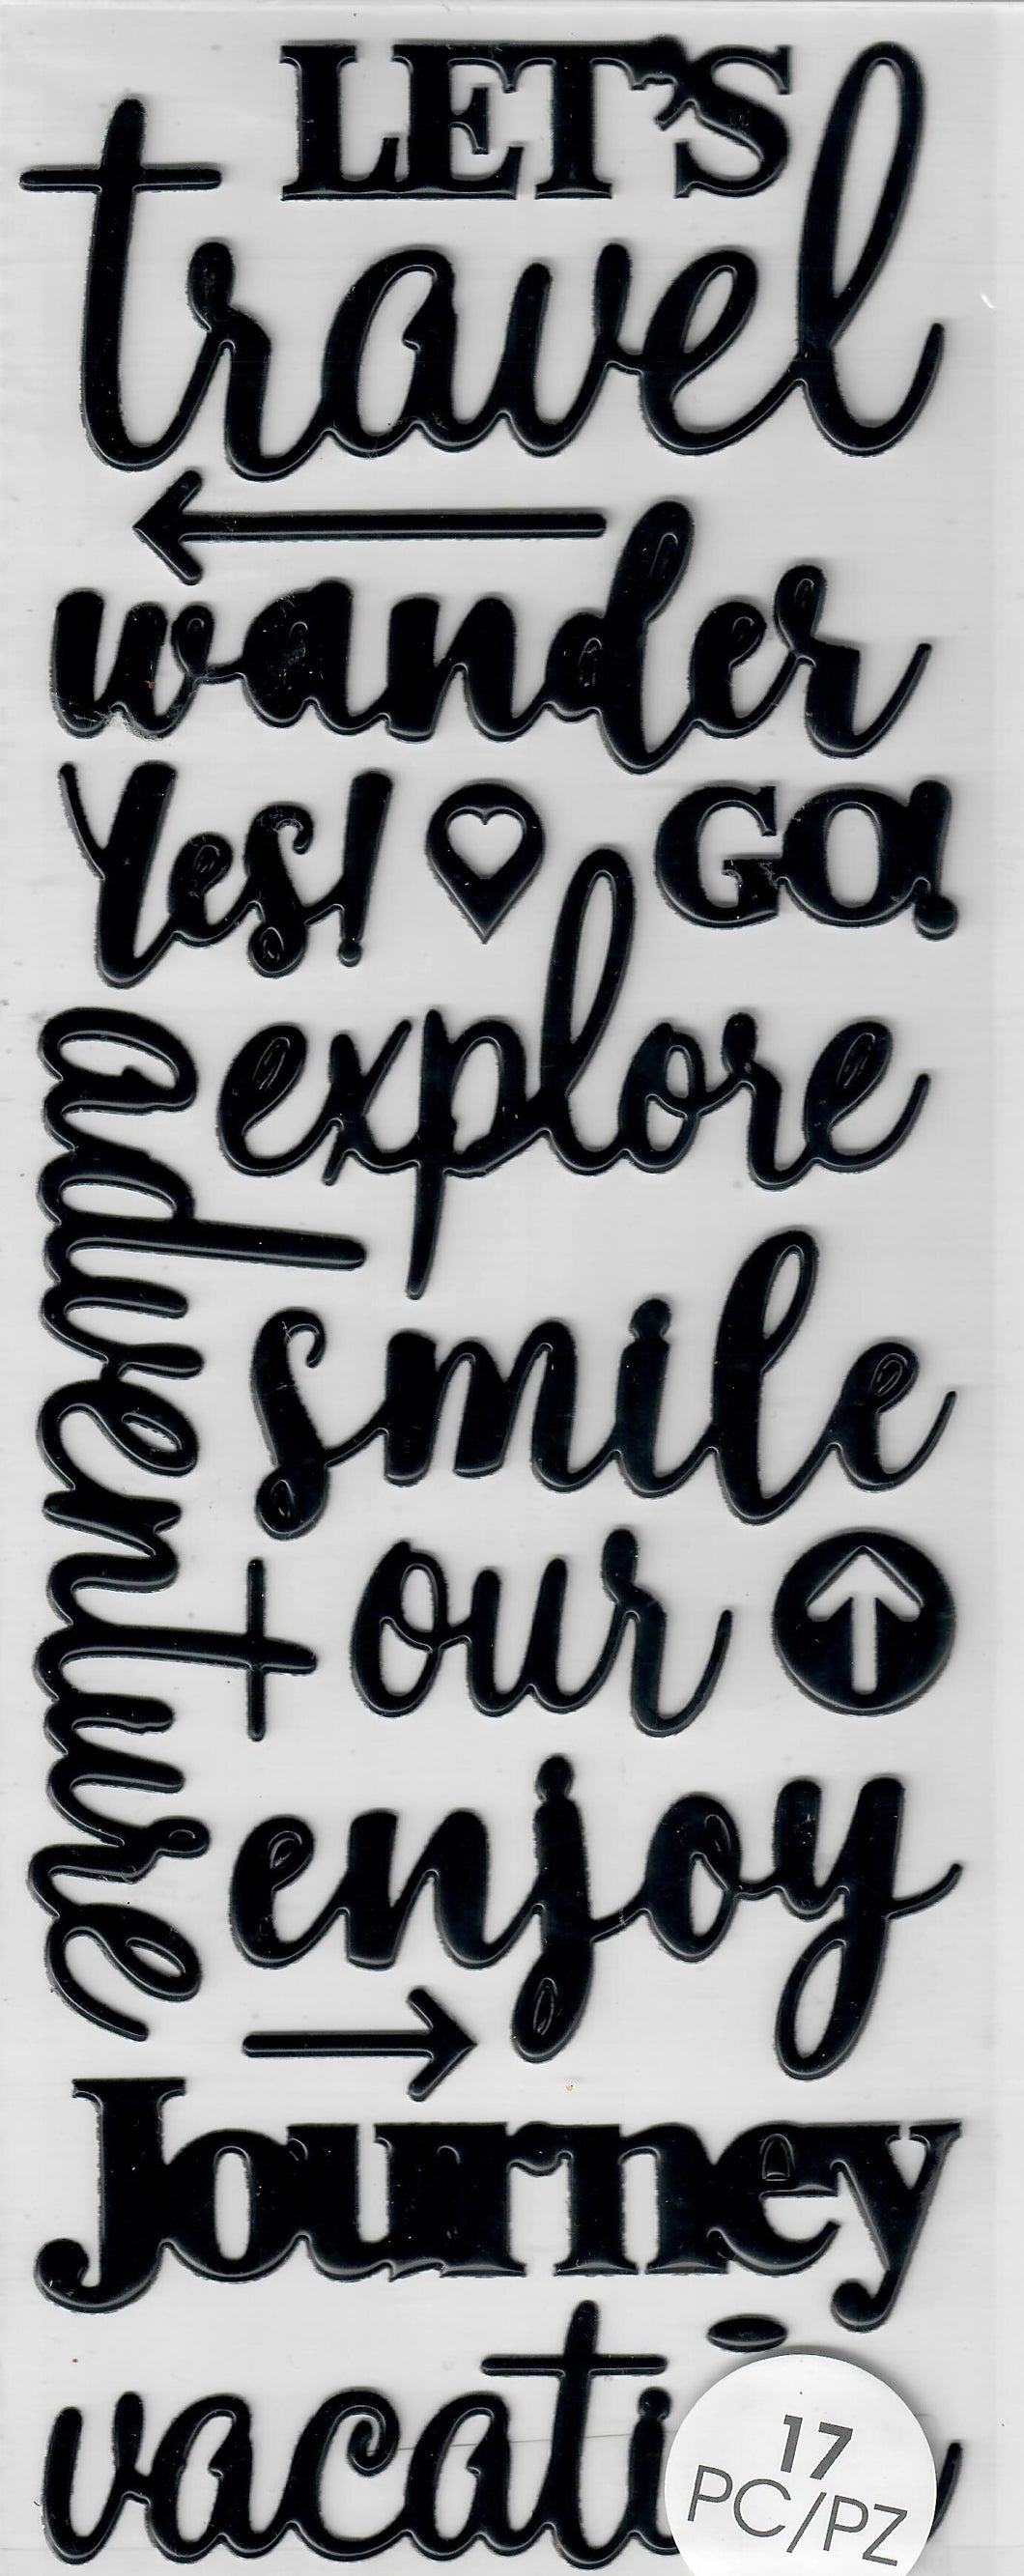 LET'S
travel
wander
Yes! GO!
explore
adventure
smile
our
enjoy
Journey
vacati
17
PC/PZ